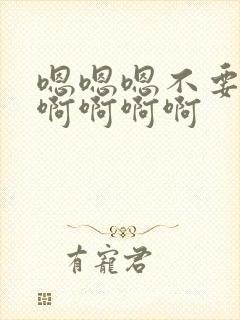 嗯嗯嗯不要
啊啊啊啊
有寵君